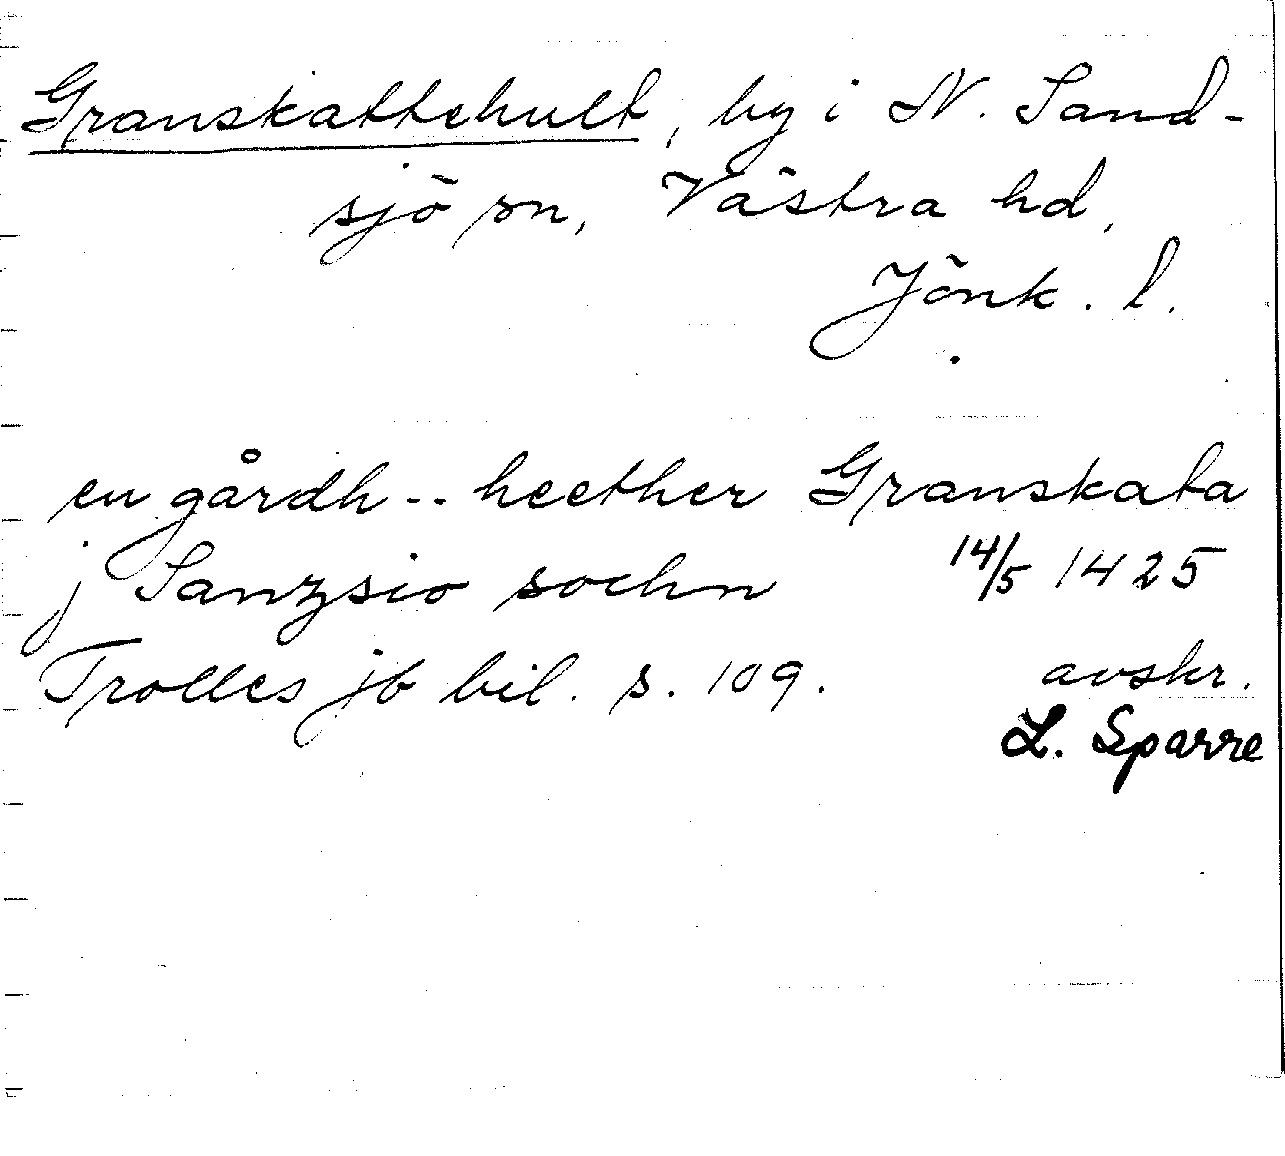 Granskattehult, by i N. Sand-
sjö sn, Västra hd,
Jönk. l.
en gårdh -- heether Granskata
j Sanzsio sochn 14/5 1425
Trolles jb bil. s. 109. avskr.
L. Sparre